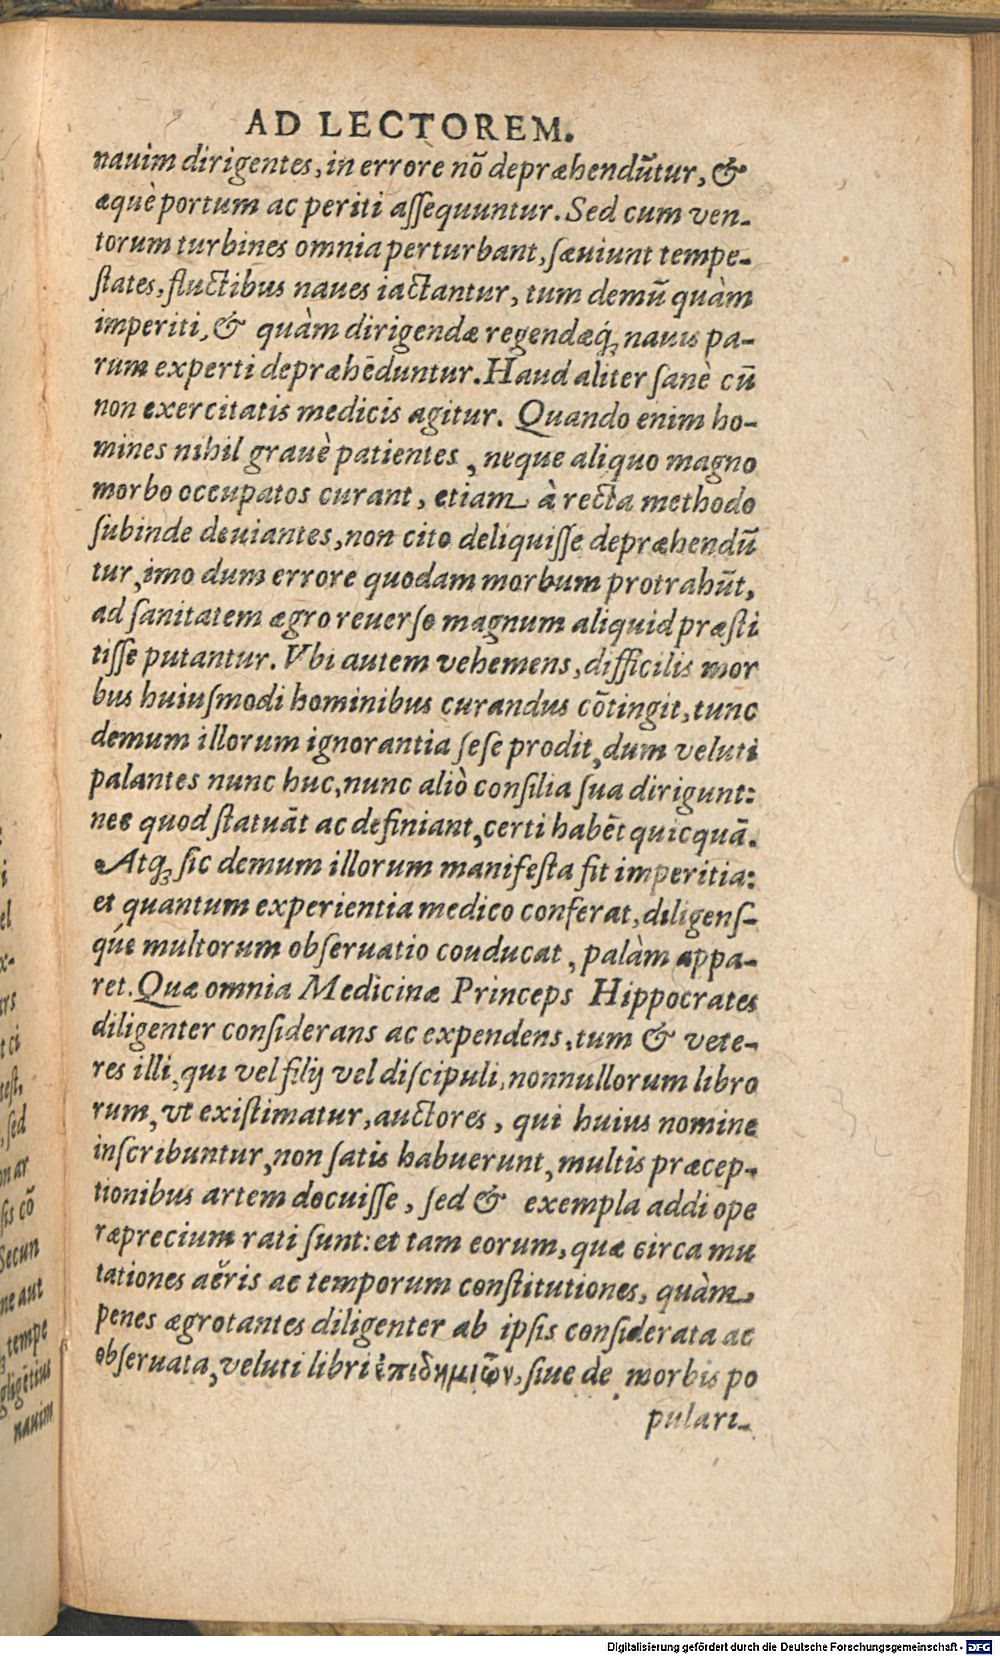 AD LECTOREM.
nauim dirigentes, in errore nō depræhendūtur, &
æquè portum ac periti aſſequuntur. Sed cum ven-
torum turbines omnia perturbant, ſæuiunt tempe-
ſtates, fluctibus naues iactantur, tum demū quàm
imperiti, & quàm dirigendæ regendæq́; nauis pa-
rum experti depræhēduntur. Haud aliter ſanè cū
non exercitatis medicis agitur. Quando enim ho-
mines nihil grauè patientes, neque aliquo magno
morbo occupatos curant, etiam à recta methodo
ſubinde deuiantes, non cito deliquiſſe depræhendū
tur, imo dum errore quodam morbum protrahūt,
ad ſanitatem ægro reuerſo magnum aliquid præſti
tiſſe putantur. Vbi autem vehemens, difficilis mor
bus huiuſmodi hominibus curandus cōtingit, tunc
demum illorum ignorantia ſeſe prodit, dum veluti
palantes nunc huc, nunc aliò conſilia ſua dirigunt:
nec quod ſtatuāt ac definiant, certi habēt quicquā.
Atq; ſic demum illorum manifeſta fit imperitia:
et quantum experientia medico conferat, diligenſ-
q́ue multorum obſeruatio couducat, palàm appa-
ret. Quæ omnia Medicinæ Princeps Hippocrates
diligenter conſiderans ac expendens, tum & vete-
res illi, qui vel filij vel diſcipuli, nonnullorum libro
rum, vt exiſtimatur, auctores, qui huius nomine
inſcribuntur, non ſatis habuerunt, multis præcep-
tionibus artem docuiſſe, ſed & exempla addi ope
ræprecium rati ſunt: et tam eorum, quæ circa mu
tationes aëris ac temporum conſtitutiones, quàm
penes ægrotantes diligenter ab ipſis conſiderata ac
obſeruata, veluti libri ἐπιδημιῶν, ſiue de morbis po
pulari-
el
x-
rs
t ci
teſt,
, ſed
mar
ſis cō
Secun
ne aut
tempe
gligētius
nauim
Digitalisierung gefördert durch die Deutsche Forschungsgemeinschaft - DFG